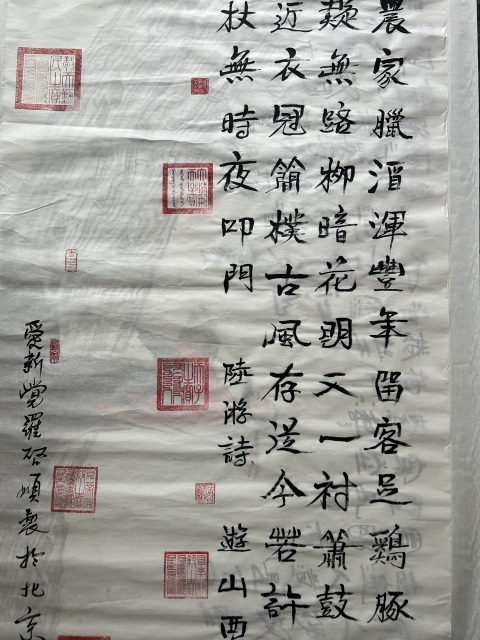 農家臘酒渾豐年留客足鷄豚
疑無路柳暗花明又一村簫鼓
近衣冠簡樸古風存從今若許
杖無時夜叩門 陸游詩 遊山西
愛新覺羅啓製於北京